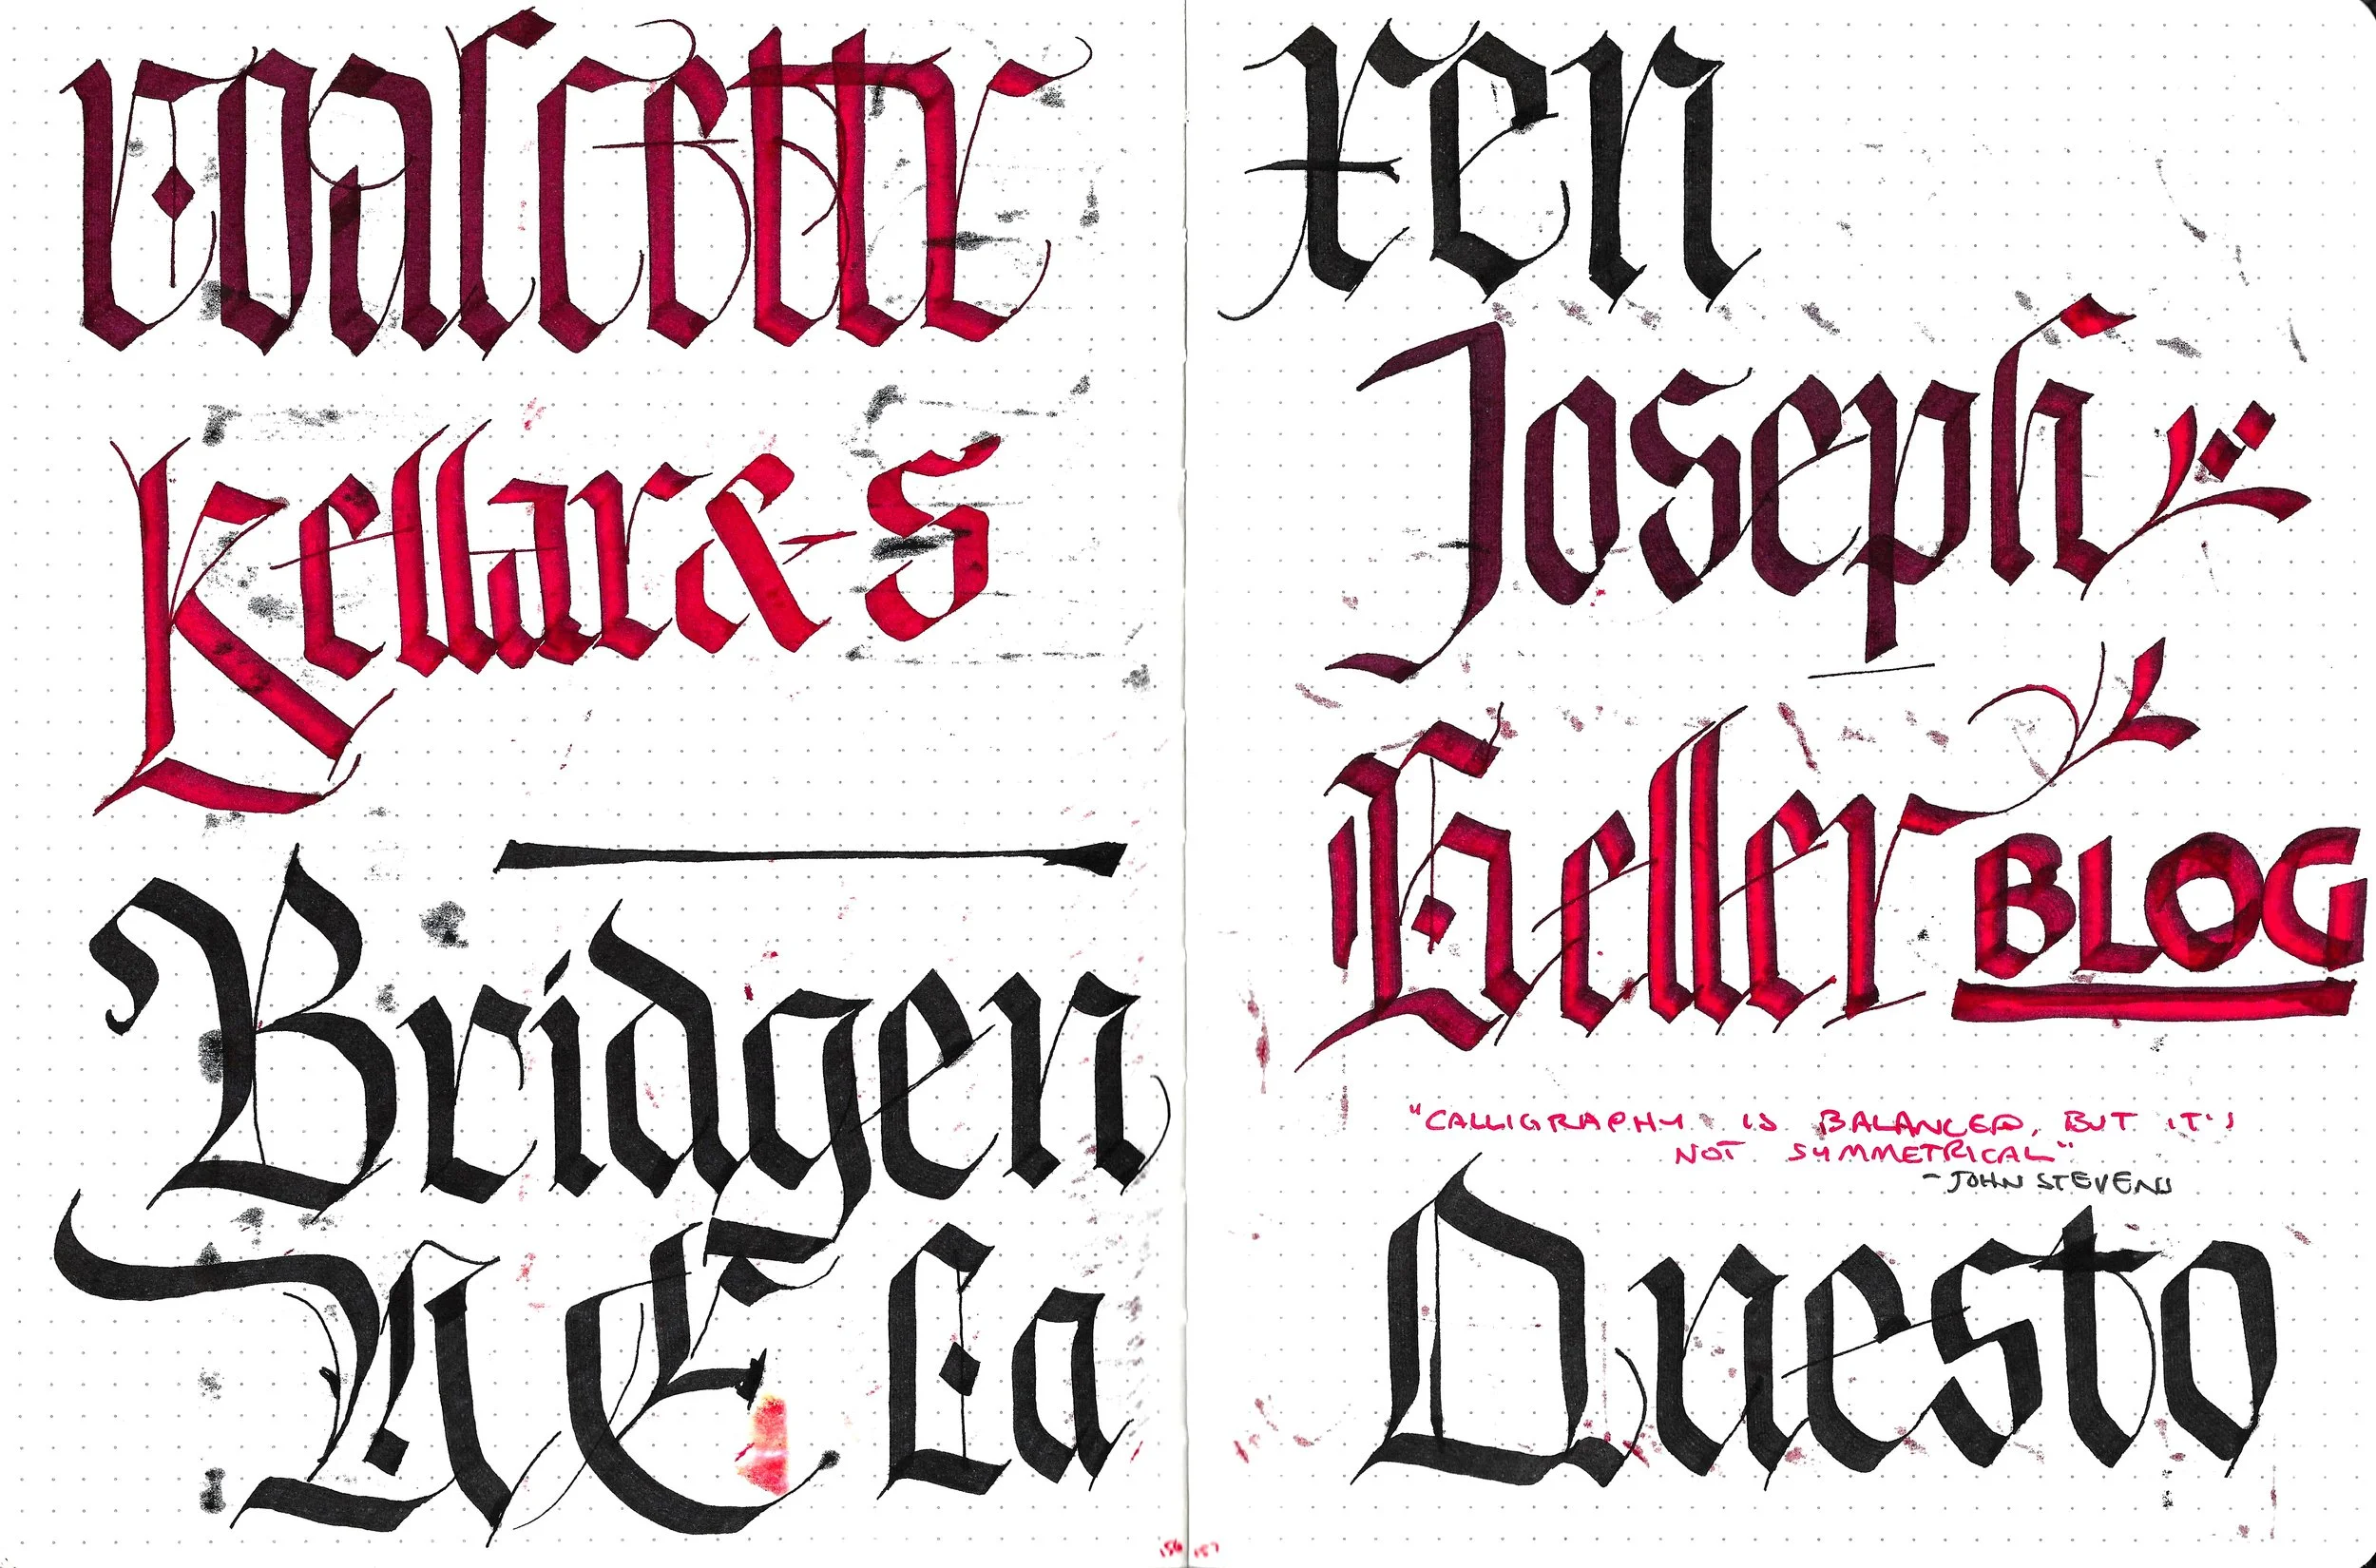 Kellar & S
Bridgen
E La
156
xen
Joseph
Heller BLOG
"CALLIGRAPHY IS BALANCED, BUT IT'S
NOT SYMMETRICAL"
- JOHN STEVENS
Questo
157